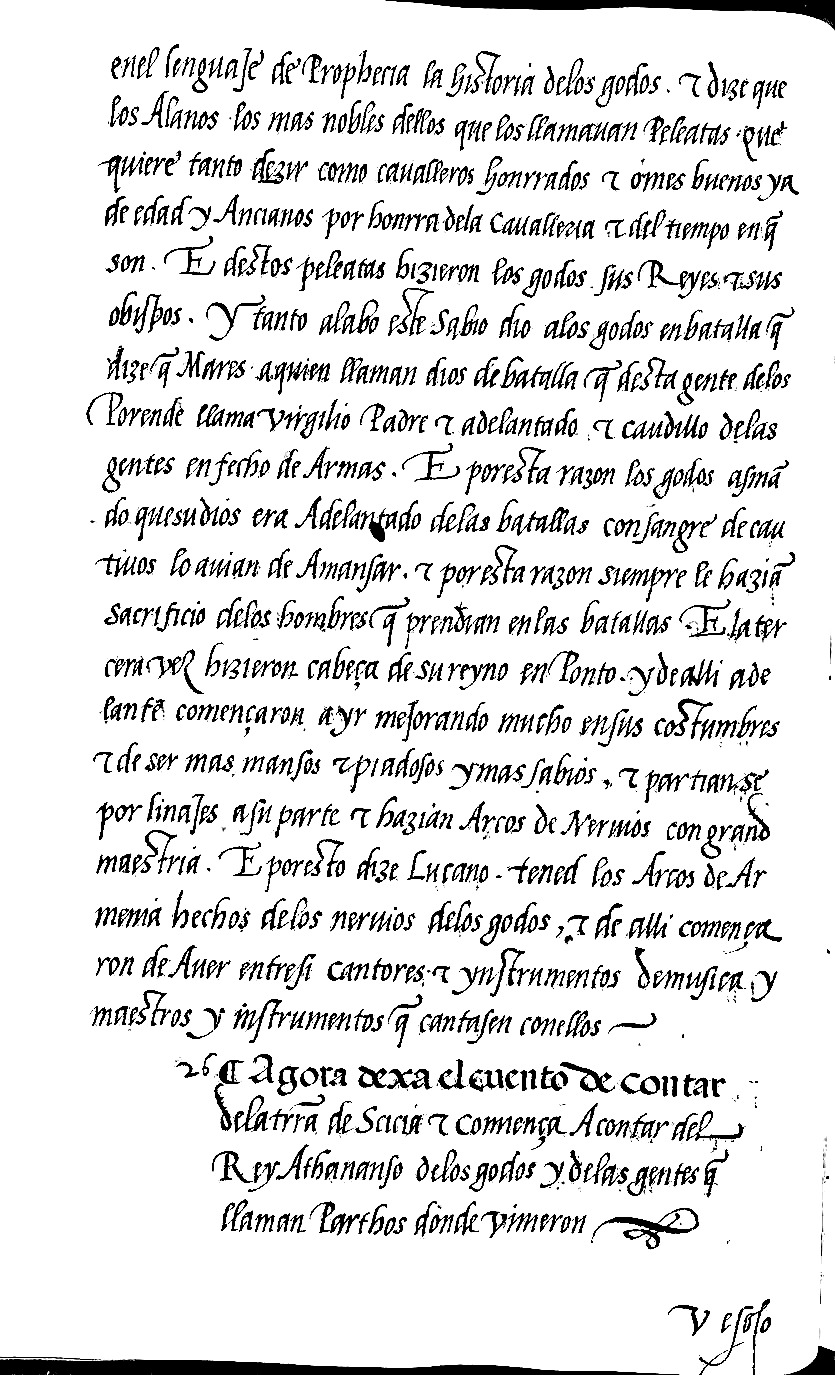 enel lenguaJe de Prophecia la historia delos godos. τ dize que
los Alanos los mas nobles dellos que los llamauan Peleatas que
quiere tanto dezir como caualleros honrrados τ omes buenos ya
de edad y Ancianos por honrra dela Caualleria τ del tiempo en q̃
son. E destos peleatas hizieron los godos sus Reyes τ sus
obispos. Y tanto alabo este Sabio dio alos godos en batalla q̃
dize q̃ Mares aquien llaman dios de batalla q̃ desta gente delos
Porende llama virgilio Padre τ adelantado τ caudillo delas
gentes en fecho de Armas. E por esta razon los godos asmã
do que su dios era Adelantado delas batallas con sangre de cau
tiuos lo auian de Amansar. τ por esta razon siempre le haziã
sacrificio delos hombres q̃ prendian en las batallas E la ter
cera vez hizieron cabeça de su reyno en Ponto. y de alli ade
lante començaron a yr meJorando mucho en sus costumbres
τ de ser mas mansos τ piadosos y mas sabios, τ partianse
por linaJes a su parte τ hazian Arcos de Neruios con grand
maestria. E por esto dize Lucano. tened los Arcos de Ar
menia hechos delos neruios delos godos, τ de alli comença
ron de Auer entresi cantores τ ynstrumentos de musica y
maestros y instrumentos q̃ cantasen conellos
26 ¶ Agora dexa el cuento de contar
dela trrã de Scicia τ comiença A contar del
Rey Athananso delos godos y delas gentes q̃
llaman Parthos donde vinieron
V esoso